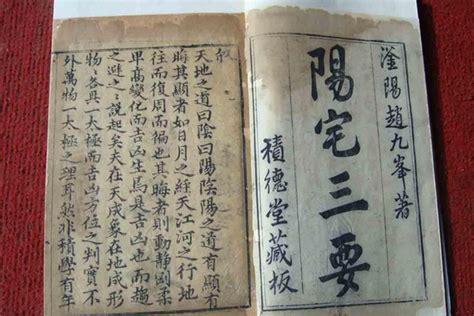 滏陽趙九峯著
陽宅三要
積德堂藏板
敘
天地之道曰陰曰陽陰陽之道有顯有
晦其顯者如日月之經天江河之行地
往而復周而徧也其晦者則動靜剛柔
卑高變化而吉凶生焉是吉凶也而趨
之避之說起矣夫在天成象在地成形
物物各具一太極而吉凶方位之判實不
外萬物一太極之理耳然非積學有年